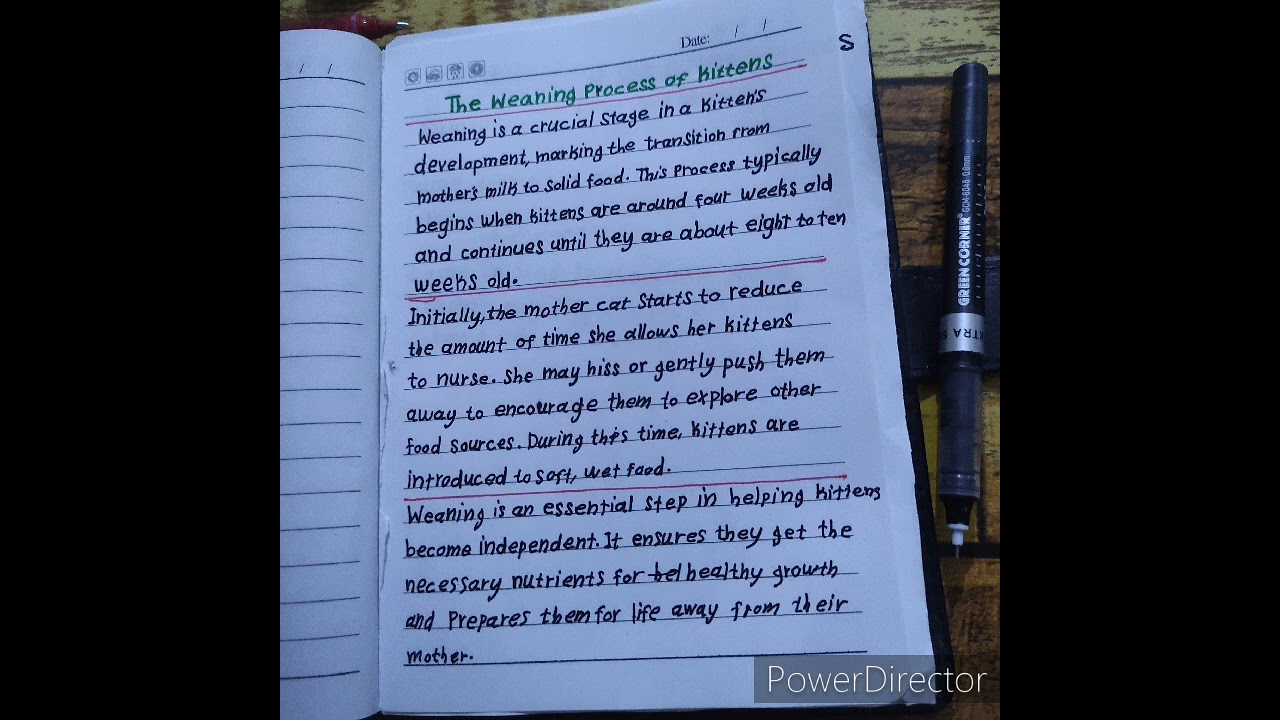 Date: / /
S
/ /
The Weaning Process of Kittens
Weaning is a crucial stage in a kitten's
development, marking the transition from
mother's milk to solid food. This process typically
begins when kittens are around four weeks old
and continues until they are about eight to ten
weeks old.
Initially, the mother cat starts to reduce
the amount of time she allows her kittens
to nurse. She may hiss or gently push them
away to encourage them to explore other
food sources. During this time, kittens are
introduced to soft, wet food.
Weaning is an essential step in helping kittens
become independent. It ensures they get the
necessary nutrients for bel healthy growth
and prepares them for life away from their
mother.
GREENCORNER GCM-6048-0.6mm
XTRA S
PowerDirector